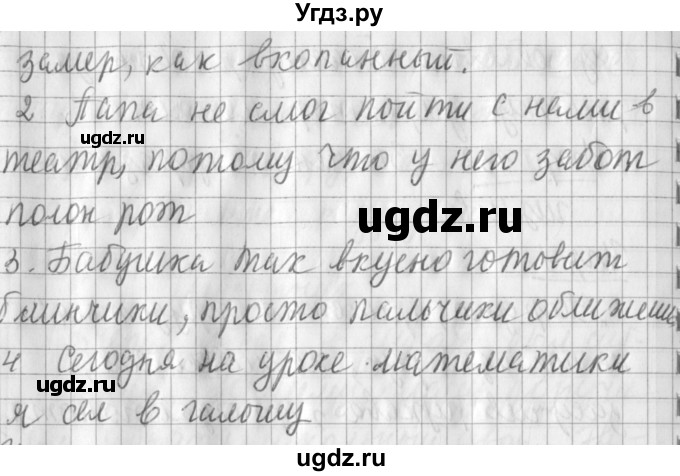 Угдз.ру
замер, как вкопанный.
2 Папа не смог пойти с нами в
ugdz.ru
театр, потому что у него забот
ugdz.ru
полон рот
ugdz.ru
3. Бабушка так вкусно готовит
блинчики, просто пальчики оближешь
4 Сегодня на уроке математики
ugdz.ru
я сел в галошу
ugdz.ru